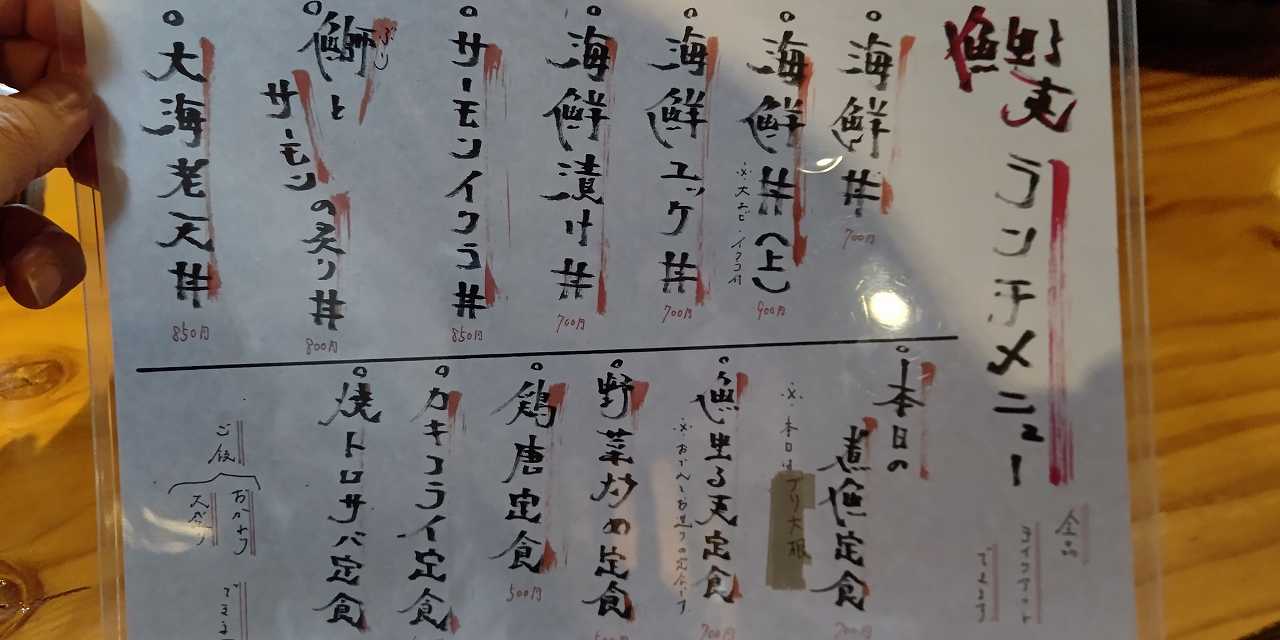 ランチメニュー
全品
テイクアウト
できます
。海鮮丼
700円
。海鮮丼(上)
900円
。海鮮ユッケ丼
700円
。海鮮漬け丼
700円
。サーモンイクラ丼
850円
。鰤とサーモンの炙り丼
ぶり
800円
。大海老天丼
850円
。本日の
煮魚定食
700円
※本日は
ブリ大根
定食
※おでんと
700円
。野菜炒め定食
。鶏唐定食
500円
。カキフライ定食
。焼トロサバ定食
ご飯
おかわり
大盛り
できます